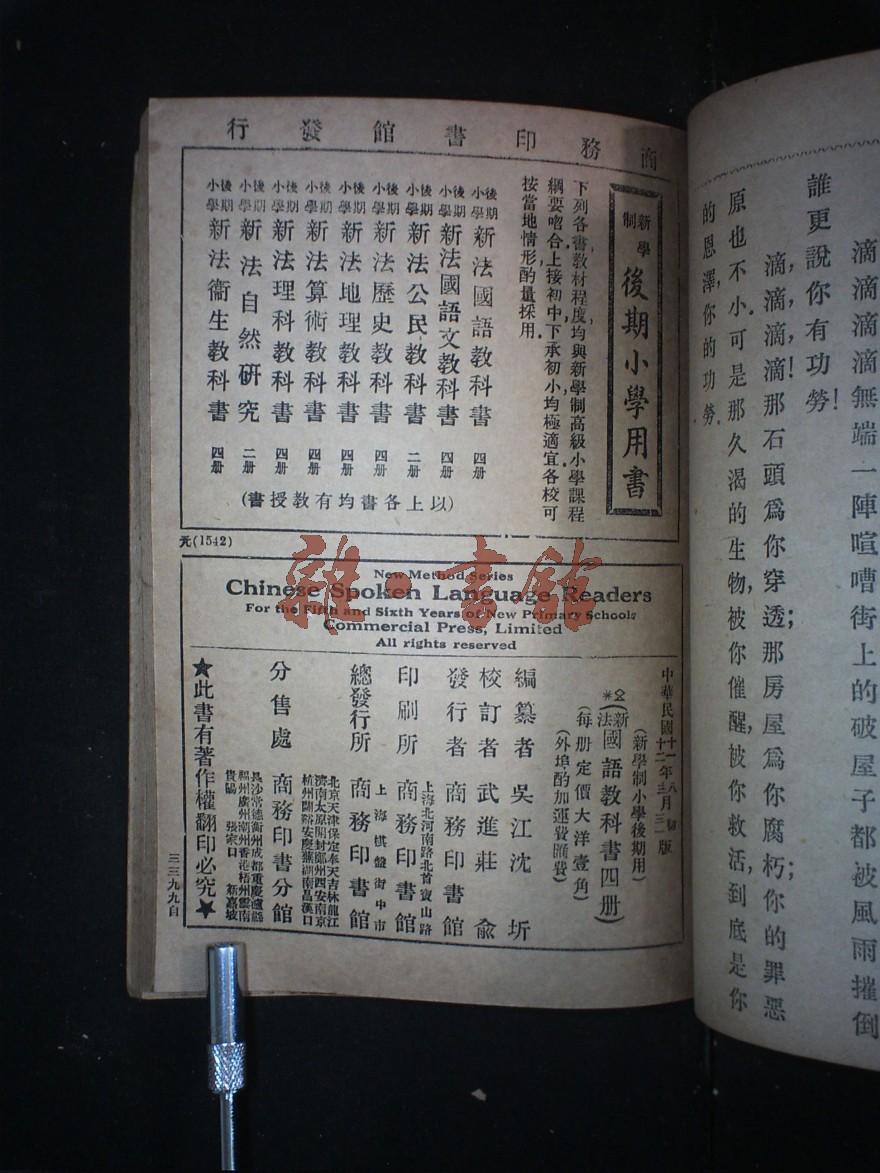 滴滴滴滴無端一陣喧嘈街上的破屋子都被風雨摧倒
誰更說你有功勞!
滴,滴,滴,滴!那石頭爲你穿透;那房屋爲你腐朽;你的罪惡
原也不小.可是那久渴的生物,被你催醒,被你救活,到底是你
的恩澤,你的功勞.
商務印書館發行
新學制 後期小學用書
下列各書,教材程度,均與新學制高級小學課程
綱要吻合,上接初中,下承初小,均極適宜,各校可
按當地情形,酌量採用.
後期小學 新法國語教科書 四册
後期小學 新法國語文教科書 四册
後期小學 新法公民教科書 二册
後期小學 新法歷史教科書 四册
後期小學 新法地理教科書 四册
後期小學 新法算術教科書 四册
後期小學 新法理科教科書 四册
後期小學 新法自然研究 二册
後期小學 新法衞生教科書 四册
(以上各書均有教授書)
元(1542)
New Method Series
Chinese Spoken Language Readers
For the Fifth and Sixth Years of New Primary Schools
Commercial Press, Limited
All rights reserved
中華民國十一年八月初版
十二年三月三一版
(新學制小學後期用)
(新法)國語教科書四册
(每册定價大洋壹角)
(外埠酌加運費匯費)
編纂者 吳江沈圻
校訂者 武進莊俞
發行者 商務印書館
上海北河南路北首寶山路
印刷所 商務印書館
上海棋盤街中市
總發行所 商務印書館
北京天津保定奉天吉林龍江
濟南太原開封鄭州西安南京
杭州蘭谿安慶蕪湖南昌漢口
分售處 商務印書分館
長沙常德衡州成都重慶瀘縣
福州廣州潮州香港梧州雲南
貴陽 張家口 新嘉坡
★此書有著作權翻印必究★
三三九九自
雜·書館